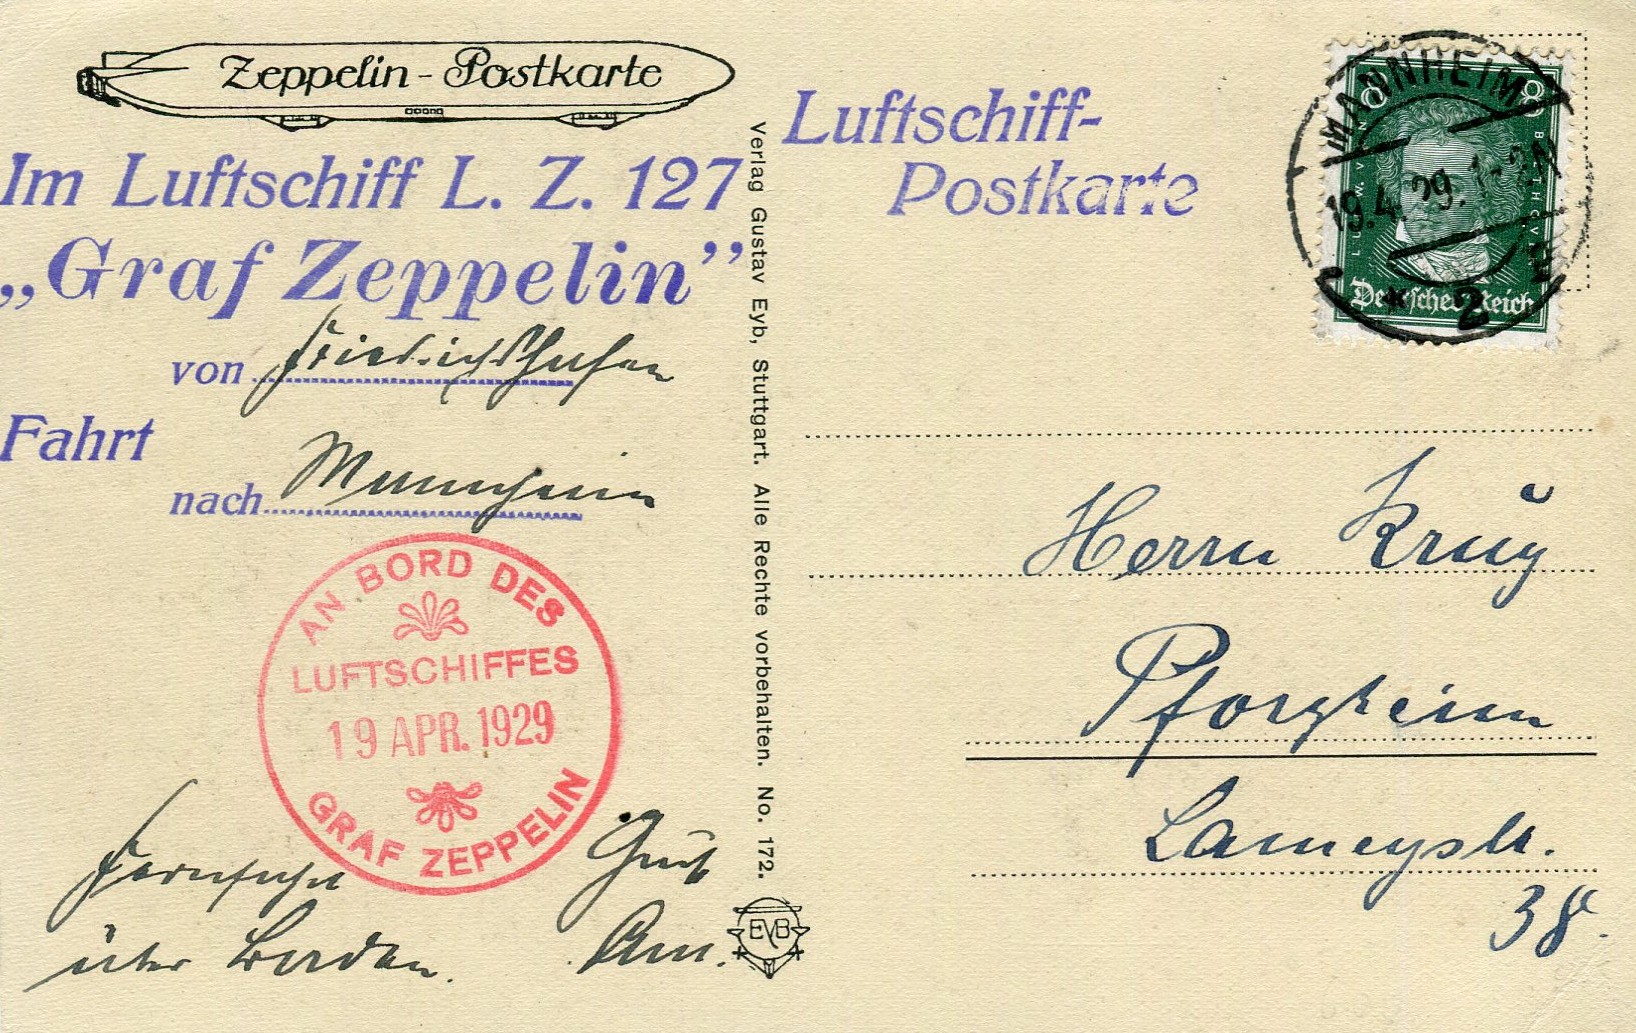 Zeppelin-Postkarte
Im Luftschiff L. Z. 127
„Graf Zeppelin”
von Friedrichshafen
Fahrt
nach Mannheim
AN BORD DES
LUFTSCHIFFES
19 APR. 1929
GRAF ZEPPELIN
über Baden.
Gruß
Verlag Gustav Eyb, Stuttgart. Alle Rechte vorbehalten. No. 172.
EYB
Luftschiff-
Postkarte
MANNHEIM
19.4.29.
* 2
8 8
LUDW. V. BEETHOVEN
Deutsches Reich
Herrn Krug
Pforzheim
Lameystr.
38.